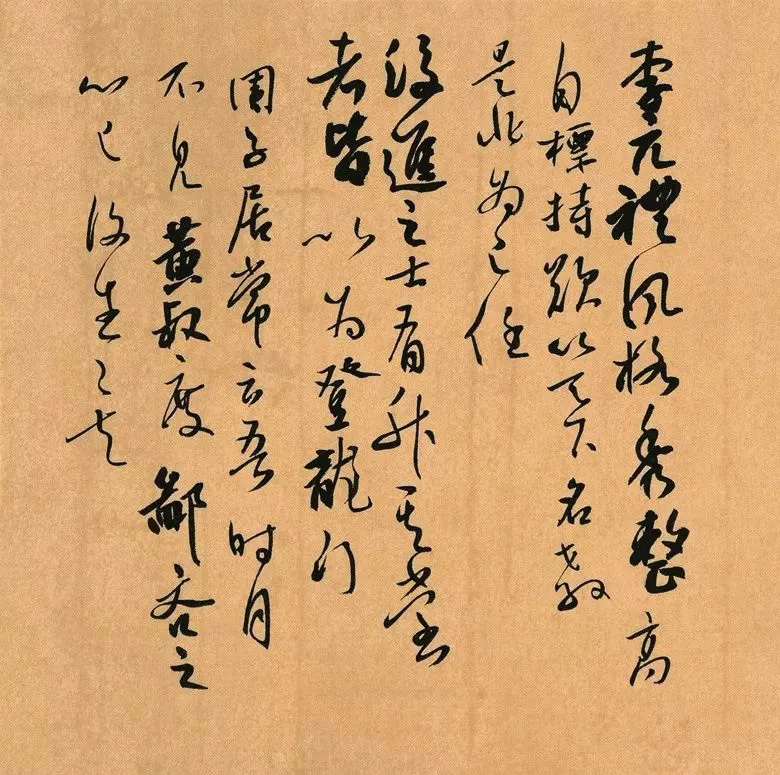 李元禮風格秀整高
自標持欲以天下名教
是非為己任
後進之士有升其堂
者皆以為登龍門
周子居常云吾時月
不見黃叔度鄙吝之
心已復生矣